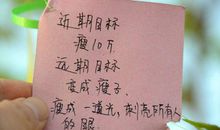 近期目标
瘦10斤
远期目标
变成瘦子.
瘦成一道光,刺亮所有人
的眼